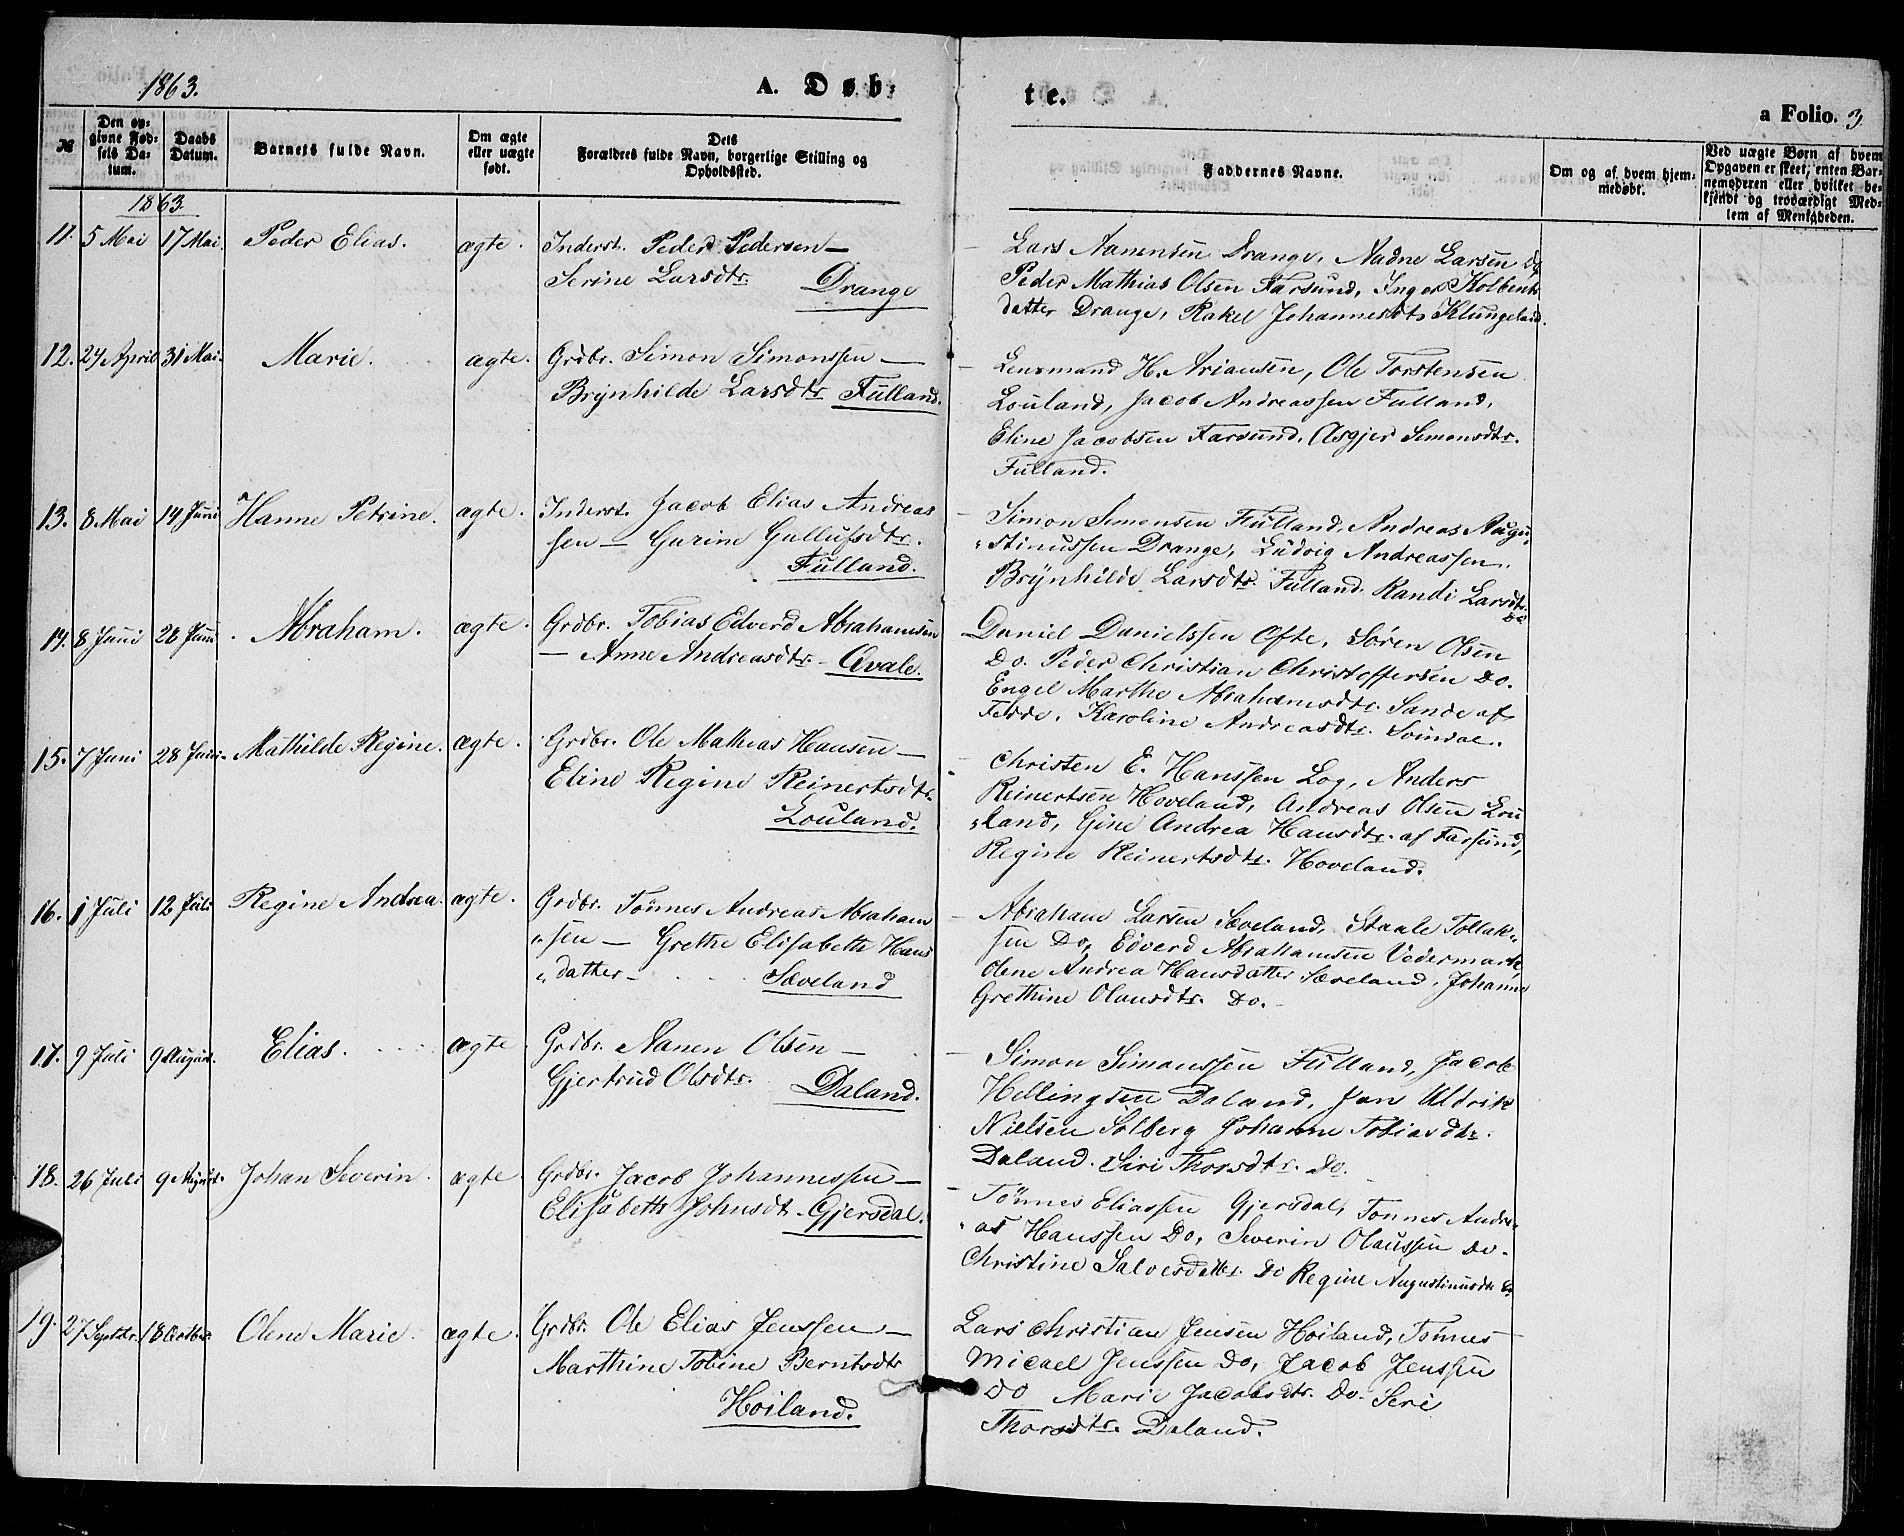 1863.
A. Døb-
te.
a Folio. 3
№
Den op-
givne Fød-
sels Da-
tum.
Daabs
Datum.
Barnets fulde Navn.
Om ægte
eller uægte
født.
Dets
Forældres fulde Navn, borgerlige Stilling og
Opholdssted.
Faddernes Navne.
Om og af hvem hjem-
medøbt.
Ved uægte Børn af hvem
Opgaven er skeet, enten Bar-
nemoderen eller hvilket be-
kjendt og troværdigt Med-
lem af Menigheden.
1863.
11. 5 Mai 17 Mai. Peder Elias. ægte. Inderst. Peder Pedersen —
Serine Larsdtr. Drange
Lars Aanensen Drange, Aadne Larsen Do
Peder Mathias Olsen Farsund, Inger Kolbents
datter Drange, Rakel Johannesdtr Klungeland.
12. 24 April 31 Mai. Marie. ægte. Grdbr. Simon Simonssen —
Brynhilde Larsdtr Fulland.
Lensmand H. Ariansen, Ole Torstensen
Louland, Jacob Andreassen Fulland,
Eline Jacobsen Farsund, Asgjer Simonsdtr.
Fulland.
13. 8 Mai 14 Juni Hanne Petrine. ægte. Inderst. Jacob Elias Andreas
sen — Gurine Gullufsdtr.
Fulland.
Simon Simonsen Fulland, Andreas Augu
stinussen Drange, Ludvig Andreassen,
Brynhilde Larsdtr. Fulland. Randi Larsdtr.
Do
14. 8 Juni 28 Juni. Abraham. ægte. Grdbr. Tobias Edverd Abrahamsen
— Anne Andreasdtr. - Qvale.
Daniel Danielssen Ofte, Søren Olsen
Do. Peder Christian Christoffersen Do.
Engel Marthe Abrahamsdtr. Sande af
Fedde. Karoline Andreasdtr.
15. 7 Juni 28 Juni. Mathilde Regine. ægte. Grdbr. Ole Mathias Hansen —
Eline Regine Reinertsdtr.
Louland.
Christen E. Hanssen Log, Anders
Reinertsen Hoveland, Andreas Olsen Lou
land, Gine Andrea Hansdtr. af Farsund,
Regine Reinertsdtr. Hoveland.
16. 1 Juli 12 Juli Regine Andrea. ægte. Grdbr. Tönnes Andreas Abraham
sen — Grethe Elisabeth Hans
datter - Sæveland
Abraham Larsen Sæveland, Staale Tollak
sen Do, Edverd Abrahamsen Vedermark,
Olene Andrea Hansdatter Sæveland, Johanne
Grethine Olausdtr. Do.
17. 9 Juli 9 August. Elias. ægte. Grdbr. Aanen Olsen —
Gjertrud Olsdtr. Daland.
Simon Simonssen Fulland, Jacob
Hellingsen Daland, Jan Uldrik
Nielsen Solberg Johanne Tobiasdtr.
Daland. Siri Thorsdtr. Do.
18. 26 Juli 9 August. Johan Severin. ægte. Grdbr. Jacob Johannessen —
Elisabeth Johnsdt. Gjersdal.
Tönnes Eliassen Gjersdal, Tonnes Andre
as Hanssen Do, Severin Olaussen Do.
Christine Salvesdatter. Do Regine Augustinusdtr Do
19. 27 Septbr. 18 Octbr. Olene Marie. ægte. Grdbr. Ole Elias Jenssen —
Marthine Tobine Berntsdtr
Hoiland.
Lars Christian Jensen Hoiland, Tönnes
Micael Jenssen Do, Jacob Jenssen
Do Marie Jacobsdtr. Do. Seri
Thorsdtr. Daland.